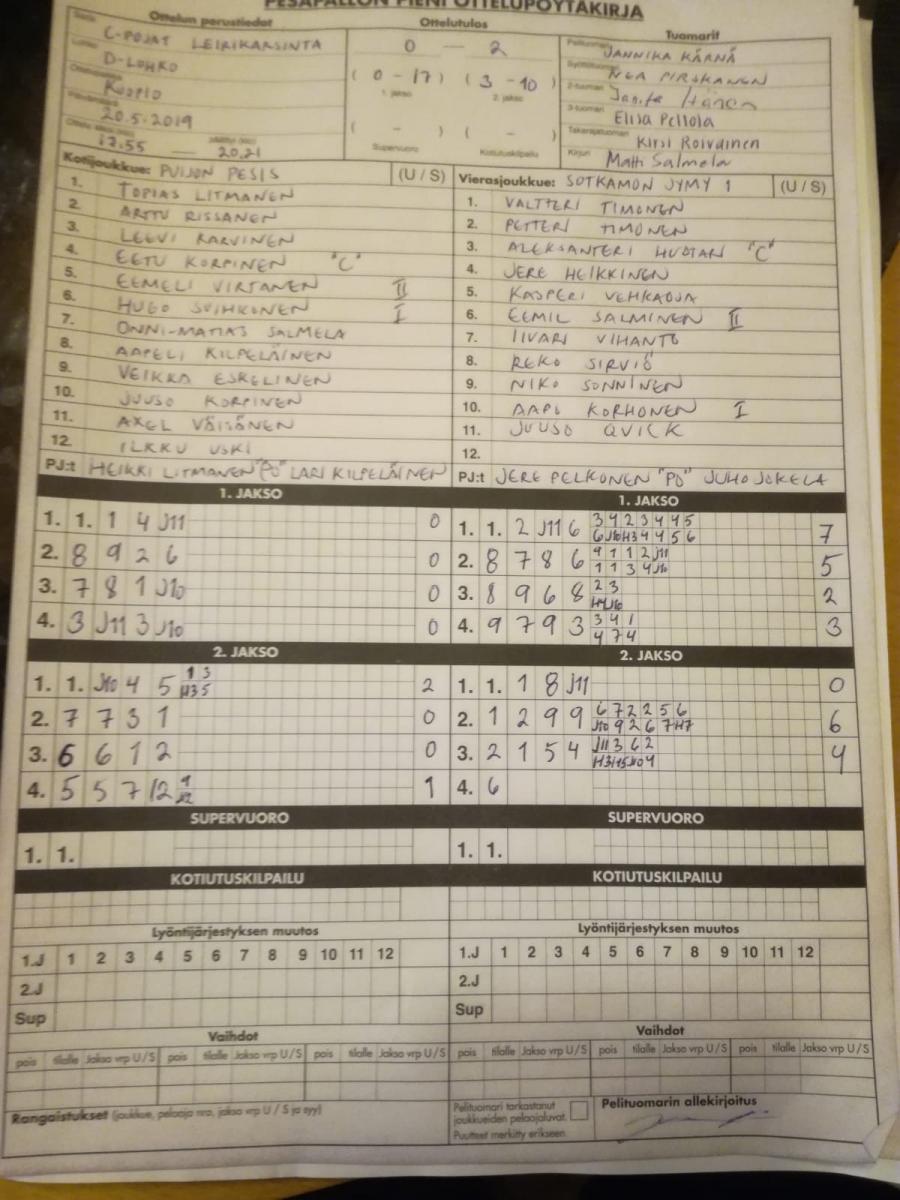 PESÄPALLON PIENI OTTELUPÖYTÄKIRJA
Ottelun perustiedot Ottelutulos Tuomarit
Sarja C-POJAT LEIRIKARSINTA 0 — 2 Pelituomari JANNIKA KÄRNÄ
Lohko D-LOHKO ( 0 - 17 ) ( 3 - 10 ) Syöttötuomari NEA PIRSKANEN
1. jakso 2. jakso
KUOPIO 2-tuomari
Päivämäärä 20.5.2019 3-tuomari Elisa Pellola
17.55 — 20.21 ( - ) ( - ) Takarajatuomari Kirsi Roivainen
Supervuoro Kotiutuskilpailu Kirjuri Matti Salmela
Kotijoukkue: PUIJON PESIS (U / S) Vierasjoukkue: SOTKAMON JYMY 1 (U / S)
1. TOPIAS LITMANEN 1. VALTTERI TIMONEN
2. ARTTU RISSANEN 2. PETTERI TIMONEN
3. LEEVI KARVINEN 3. ALEKSANTERI HUOTARI "C"
4. EETU KORPINEN "C" 4. JERE HEIKKINEN
5. EEMELI VIRTANEN II 5. KASPERI VEHKAOJA
6. HUGO SUIHKONEN I 6. EEMIL SALMINEN II
7. ONNI-MATIAS SALMELA 7. IIVARI VIHANTO
8. AAPELI KILPELÄINEN 8. REKO SIRVIÖ
9. VEIKKA ESKELINEN 9. NIKO SONNINEN
10. JUUSO KORPINEN 10. AAPO KORHONEN I
11. AXEL VÄISÄNEN 11. JUUSO QVICK
12. ILKKU USKI 12.
PJ:t HEIKKI LITMANEN "PJ" LARI KILPELÄINEN PJ:t JERE PELKONEN "PJ" JUHO JOKELA
1. JAKSO 1. JAKSO
1. 1. 1 4 J11 0 1. 1. 2 J11 6 3 4 2 3 4 4 5 7
6 J10 H3 4 4 5 6
2. 8 9 2 6 0 2. 8 7 8 6 9 1 1 2 J11 5
1 1 3 4 J10
3. 7 8 1 J10 0 3. 8 9 6 8 2 3 2
H4 J10
4. 3 J11 3 J10 0 4. 9 7 9 3 3 4 1 3
4 7 4
2. JAKSO 2. JAKSO
1. 1. J10 4 5 1 3 2 1. 1. 1 8 J11 0
H3 5
2. 7 7 3 1 0 2. 1 2 9 9 6 7 2 2 5 6 6
J10 9 2 6 7 H7
3. 6 6 1 2 0 3. 2 1 5 4 J11 3 6 2 4
4. 5 5 7 12 1 4. 6
SUPERVUORO SUPERVUORO
1. 1. 1. 1.
KOTIUTUSKILPAILU KOTIUTUSKILPAILU
Lyöntijärjestyksen muutos Lyöntijärjestyksen muutos
1.J 1 2 3 4 5 6 7 8 9 10 11 12 1.J 1 2 3 4 5 6 7 8 9 10 11 12
2.J 2.J
Sup Sup
Vaihdot Vaihdot
pois tilalle Jakso vrp U / S pois tilalle Jakso vrp U / S pois tilalle Jakso vrp U / S pois tilalle Jakso vrp U / S pois tilalle Jakso vrp U / S pois tilalle Jakso vrp U / S
Rangaistukset (joukkue, pelaaja nro, jakso, vrp U / S ja syy) Pelituomari tarkastanut joukkueiden pelaajaluvat. Pelituomarin allekirjoitus
Puutteet merkitty erikseen